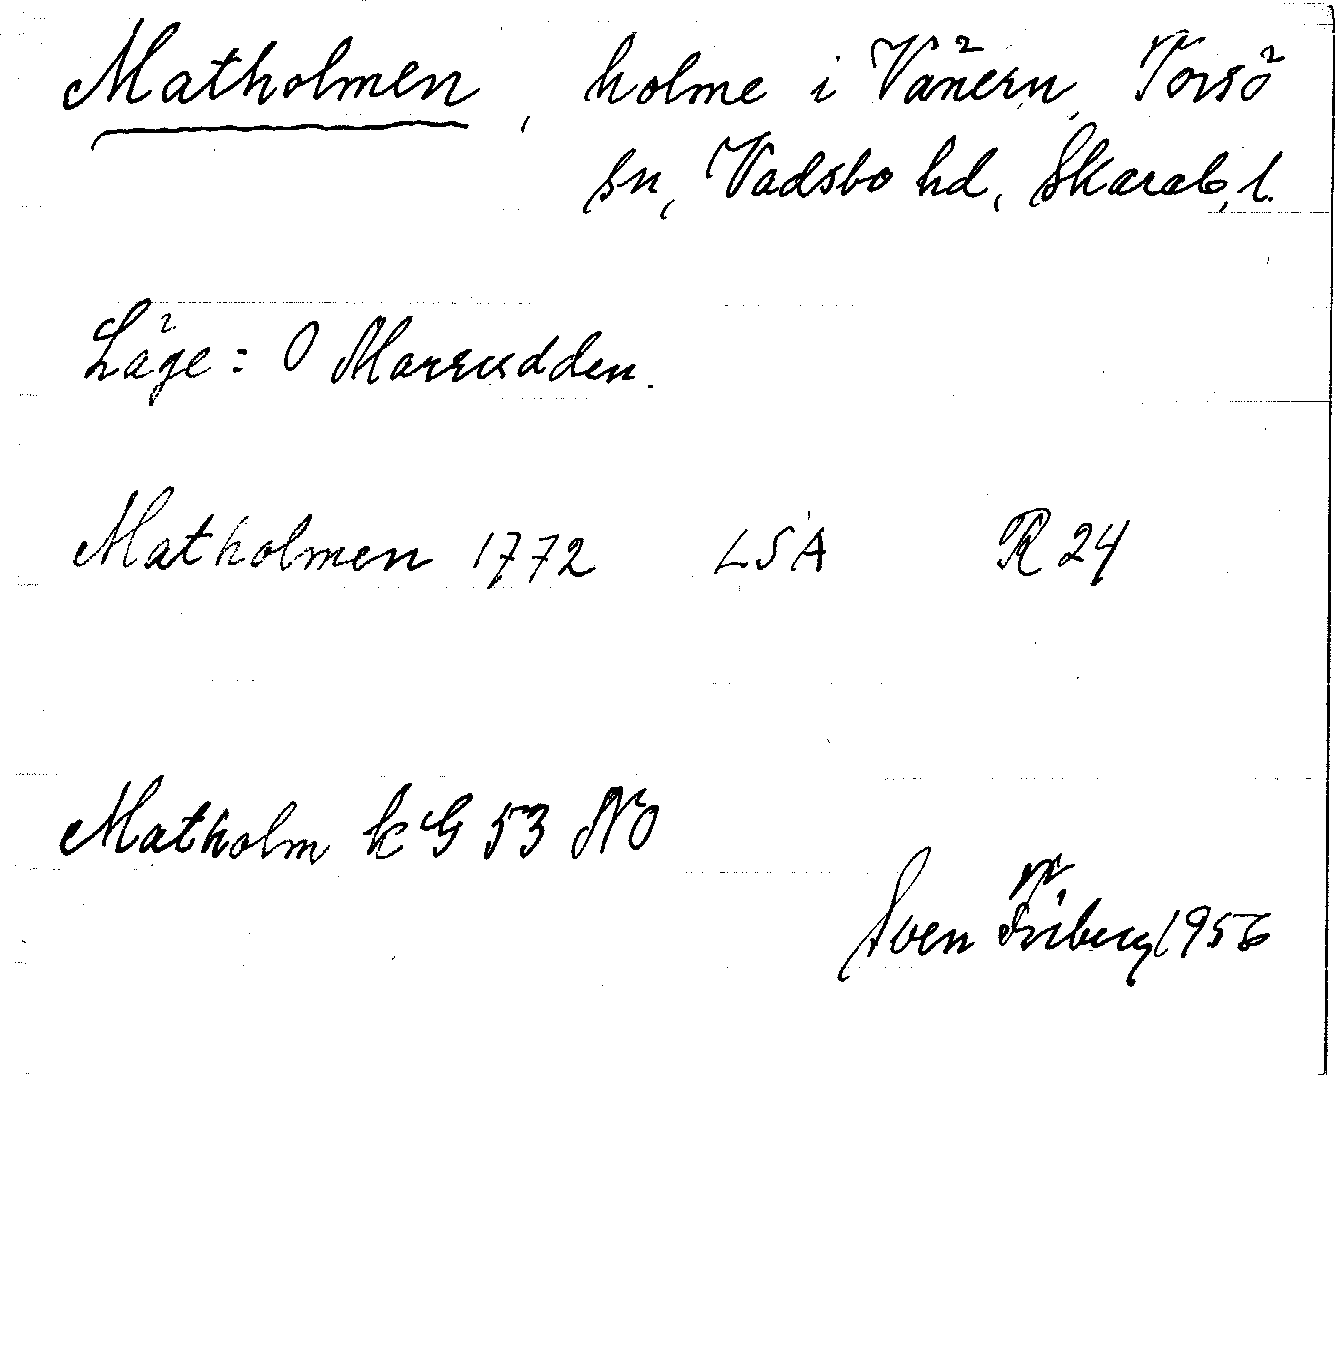 Matholmen, holme i Vänern, Torsö
sn, Vadsbo hd, Skarab. l.
Läge: O Marrudden.
Matholmen 1772 LSA R 24
Matholm kG 53 NO
Sven Friberg 1956